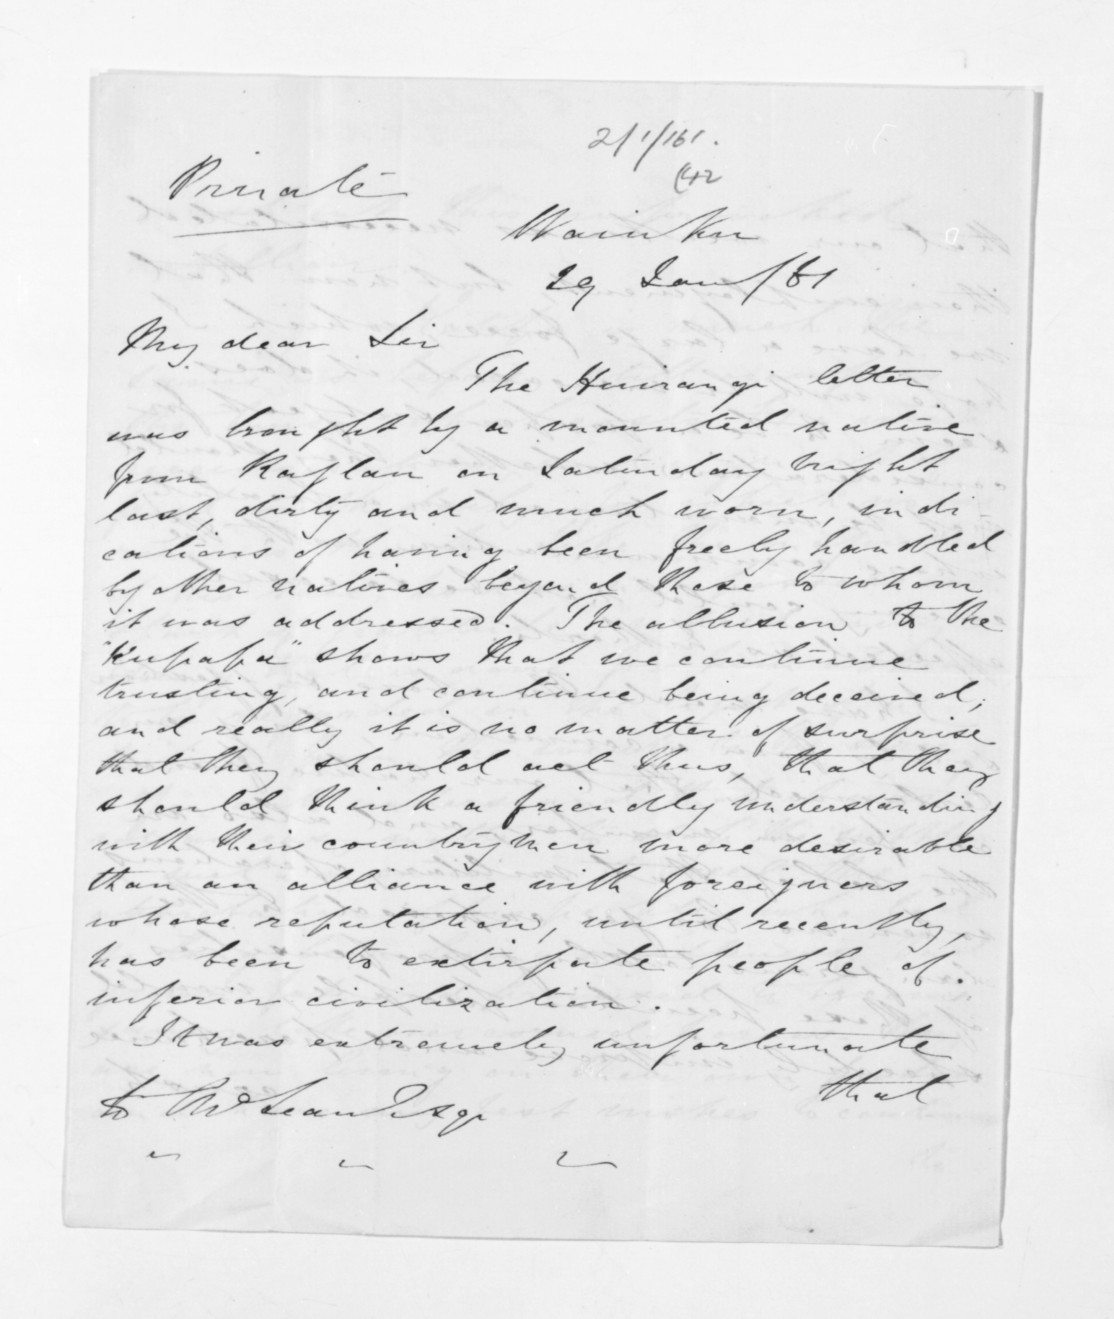 2/1/161.
(42
Private
Wainku
29 Jan/61
My dear Sir
The Huirangi letter
was brought by a mounted native
from Raglan on Saturday night
last, dirty and much worn, indi-
cations of having been freely handled
by other natives beyond those to whom
it was addressed. The allusion to the
"Kupapa" shows that we continue
trusting, and continue being deceived;
and really it is no matter of surprise
that they should act thus, that they
should think a friendly understanding
with their countrymen more desirable
than an alliance with foreigners
whose reputation, until recently,
has been to extirpate people of
inferior civilization.
It was extremely unfortunate
that
to McLean Esqr